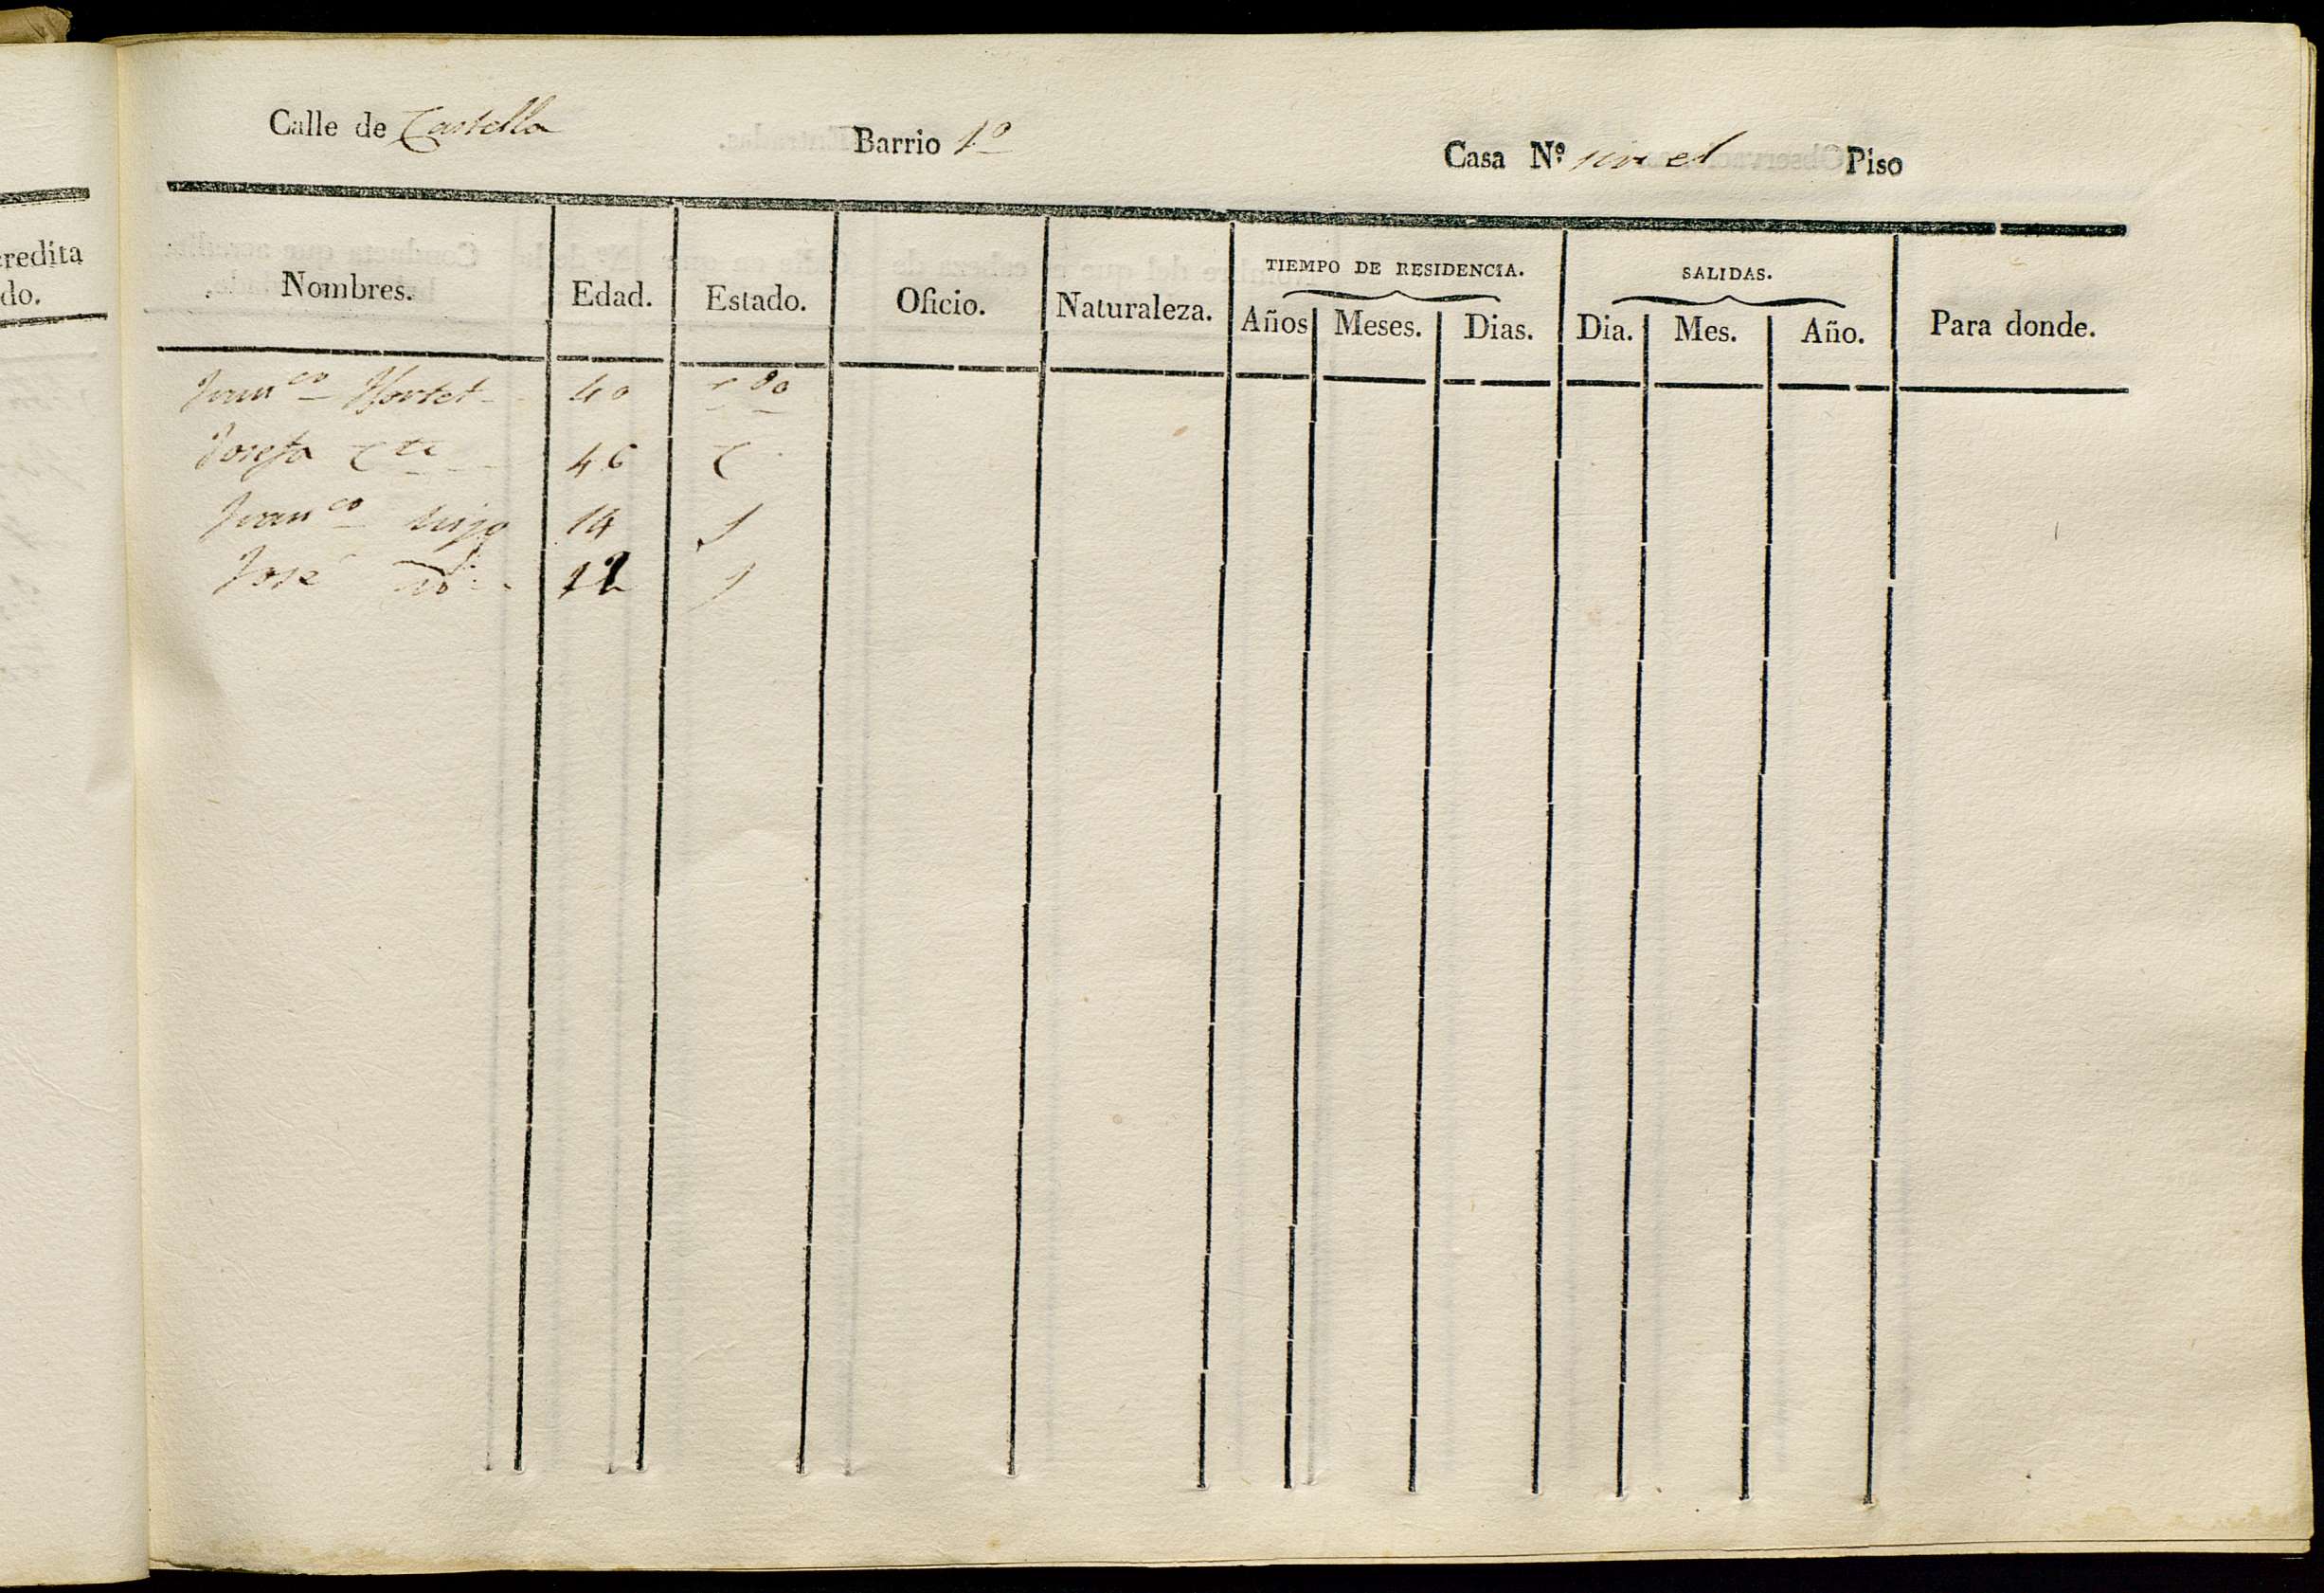 credita
do.
Calle de Castella Barrio 1º Casa Nº. sin el Piso
Nombres. Edad. Estado. Oficio. Naturaleza. TIEMPO DE RESIDENCIA. SALIDAS. Para donde.
Años Meses. Dias. Dia. Mes. Año.
Franco Hortet 40 cdo
Josefa Cte 46 C
Franco hijo 14 S
José id 12 S